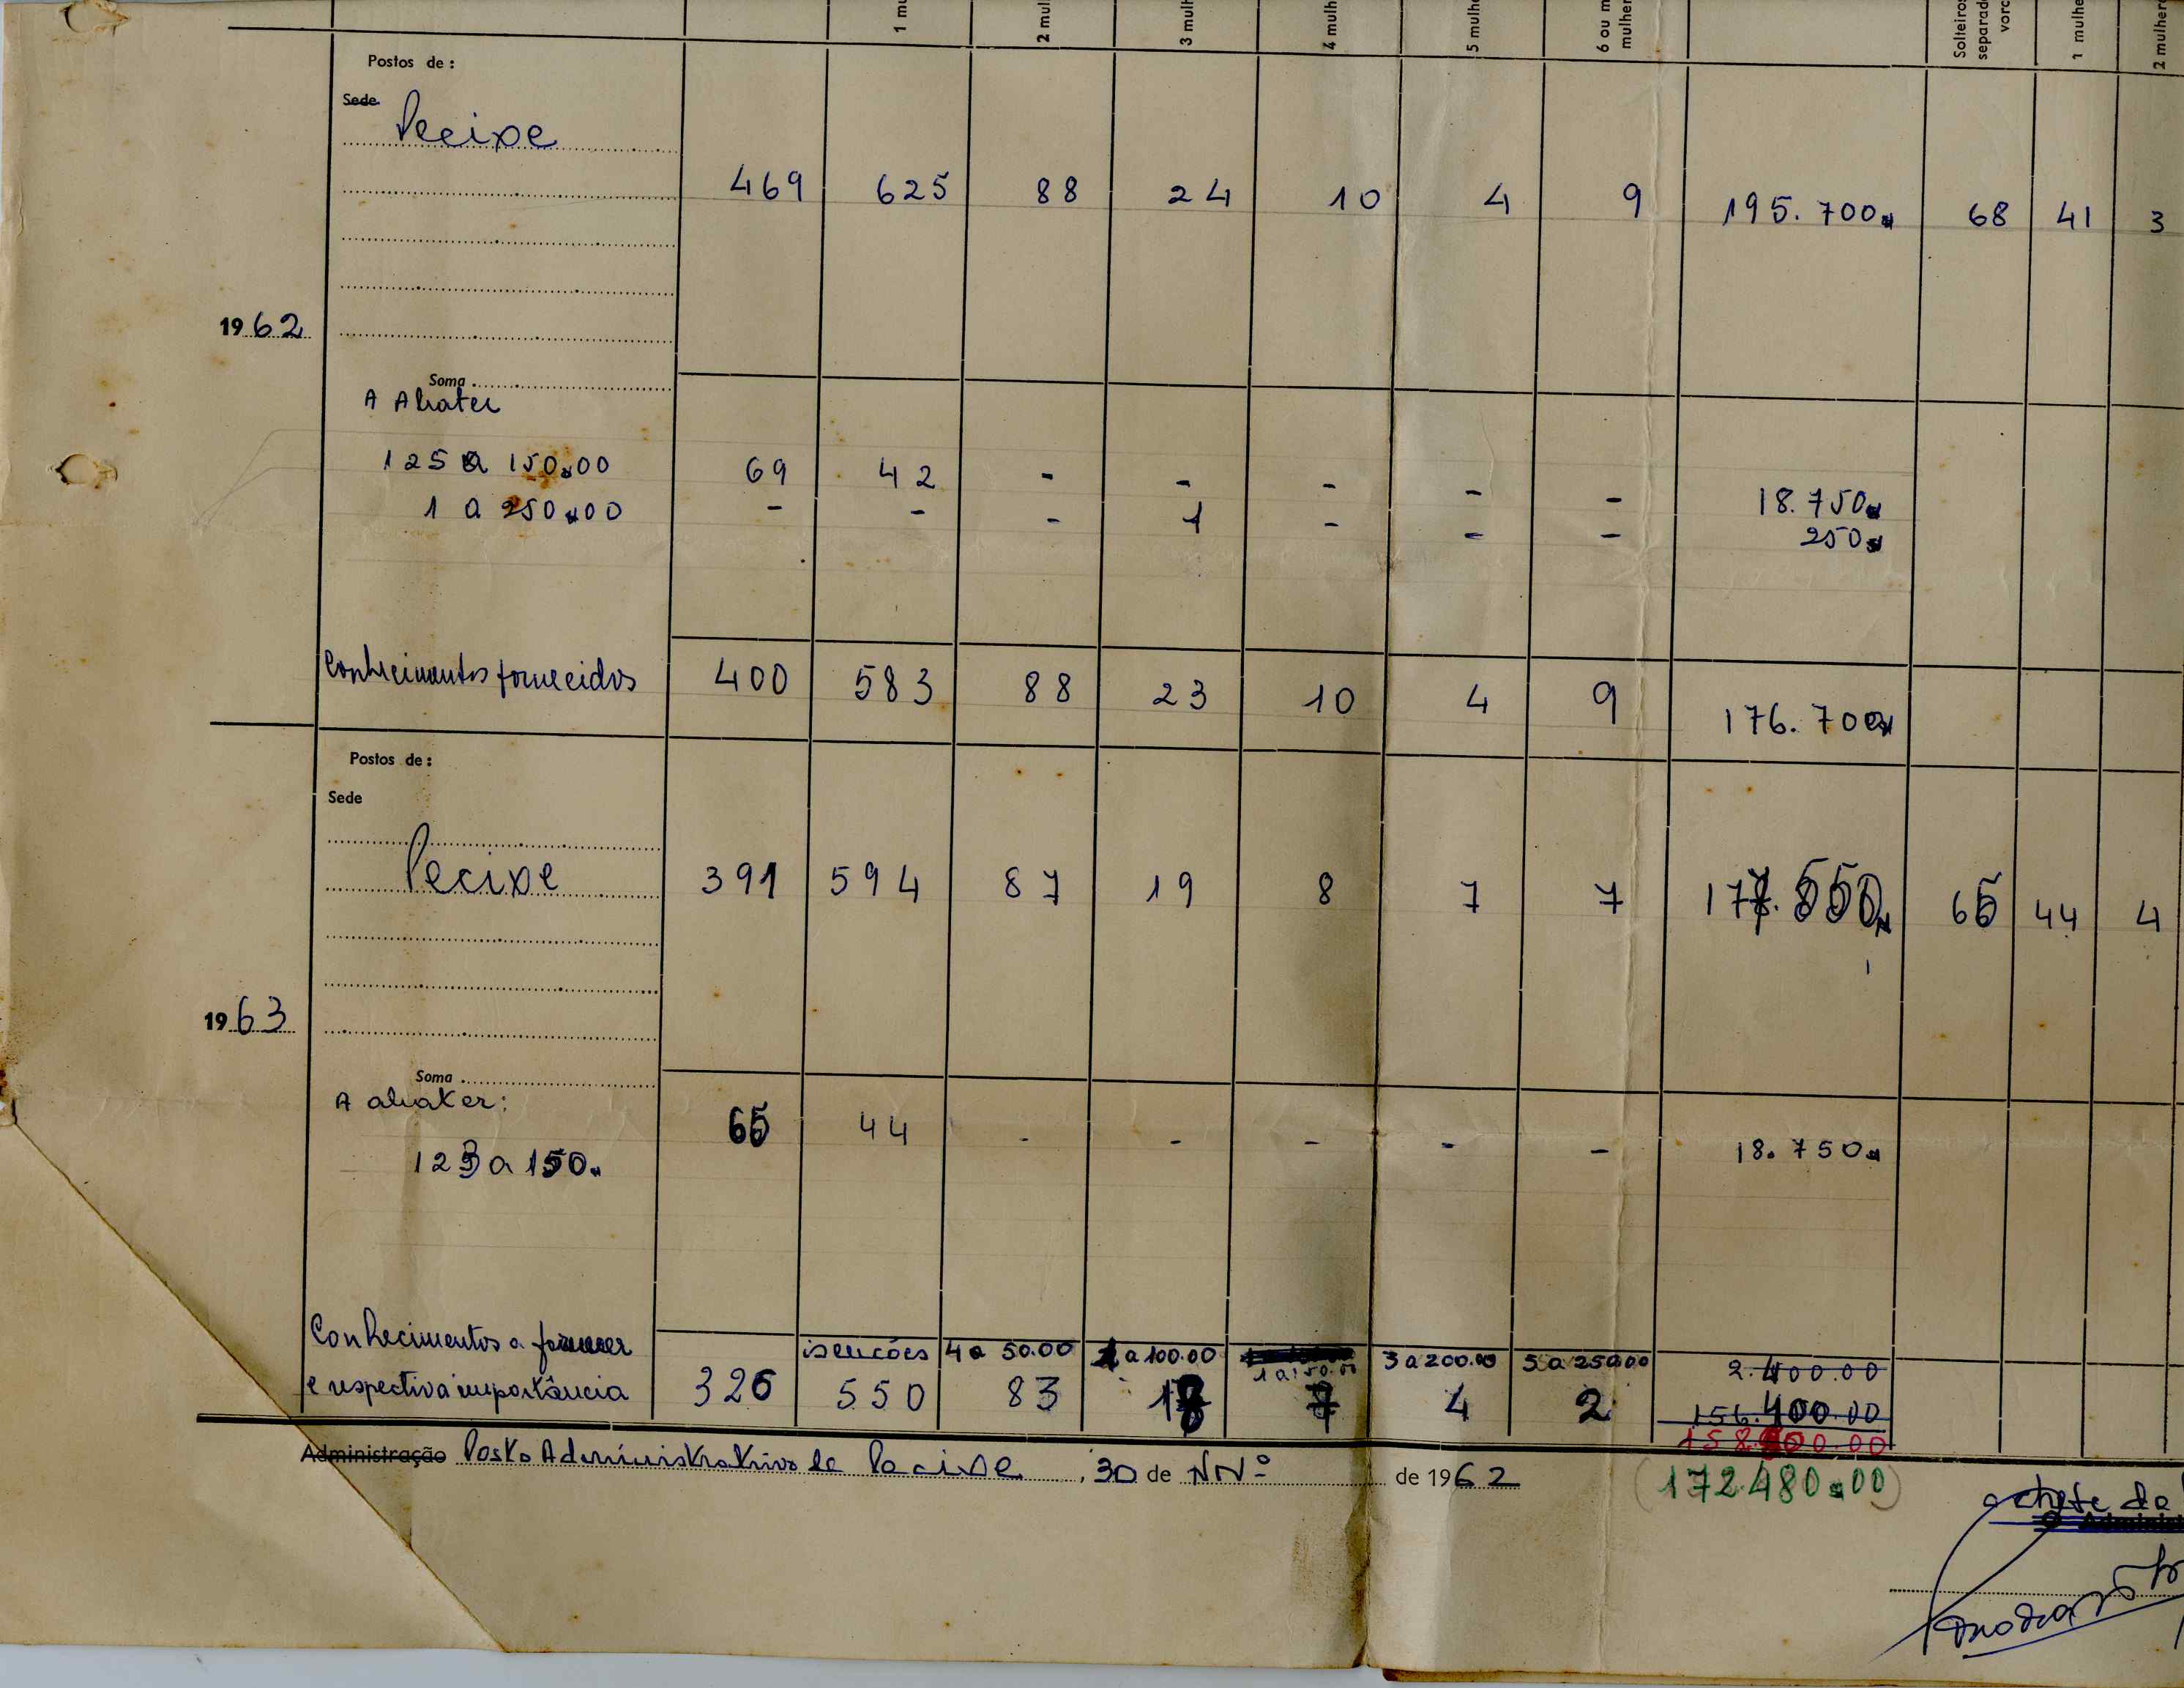 1 mu 2 mul 3 mulh 4 mulh 5 mulhe 6 ou m mulher Solteiros separad vorc 1 mulhe 2 mulher
Postos de :
Sede
Pecixe
469 625 88 24 10 4 9 195.700 68 41 3
1962
Soma
A Abater
125 a 150.00 69 42 - - - - - 18.750
1 a 250.00 - - - 1 - - - 250
Conhecimentos fornecidos 400 583 88 23 10 4 9 176.700
Postos de :
Sede
Pecixe 391 594 87 19 8 7 7 65 44 4
1963
Soma
A abater: 65 44 - - - - - 18.750
a 150
Conhecimentos a fornecer isenções 4 a 50.00 a 100.00 3 a 200.00 5 a 250.00 2.400.00
e respectiva importância 326 550 83 4 2 156.400.00
Administração Posto Administrativo de Pecixe, 30 de de 1962
(172.480.00)
o chefe do
O Administ